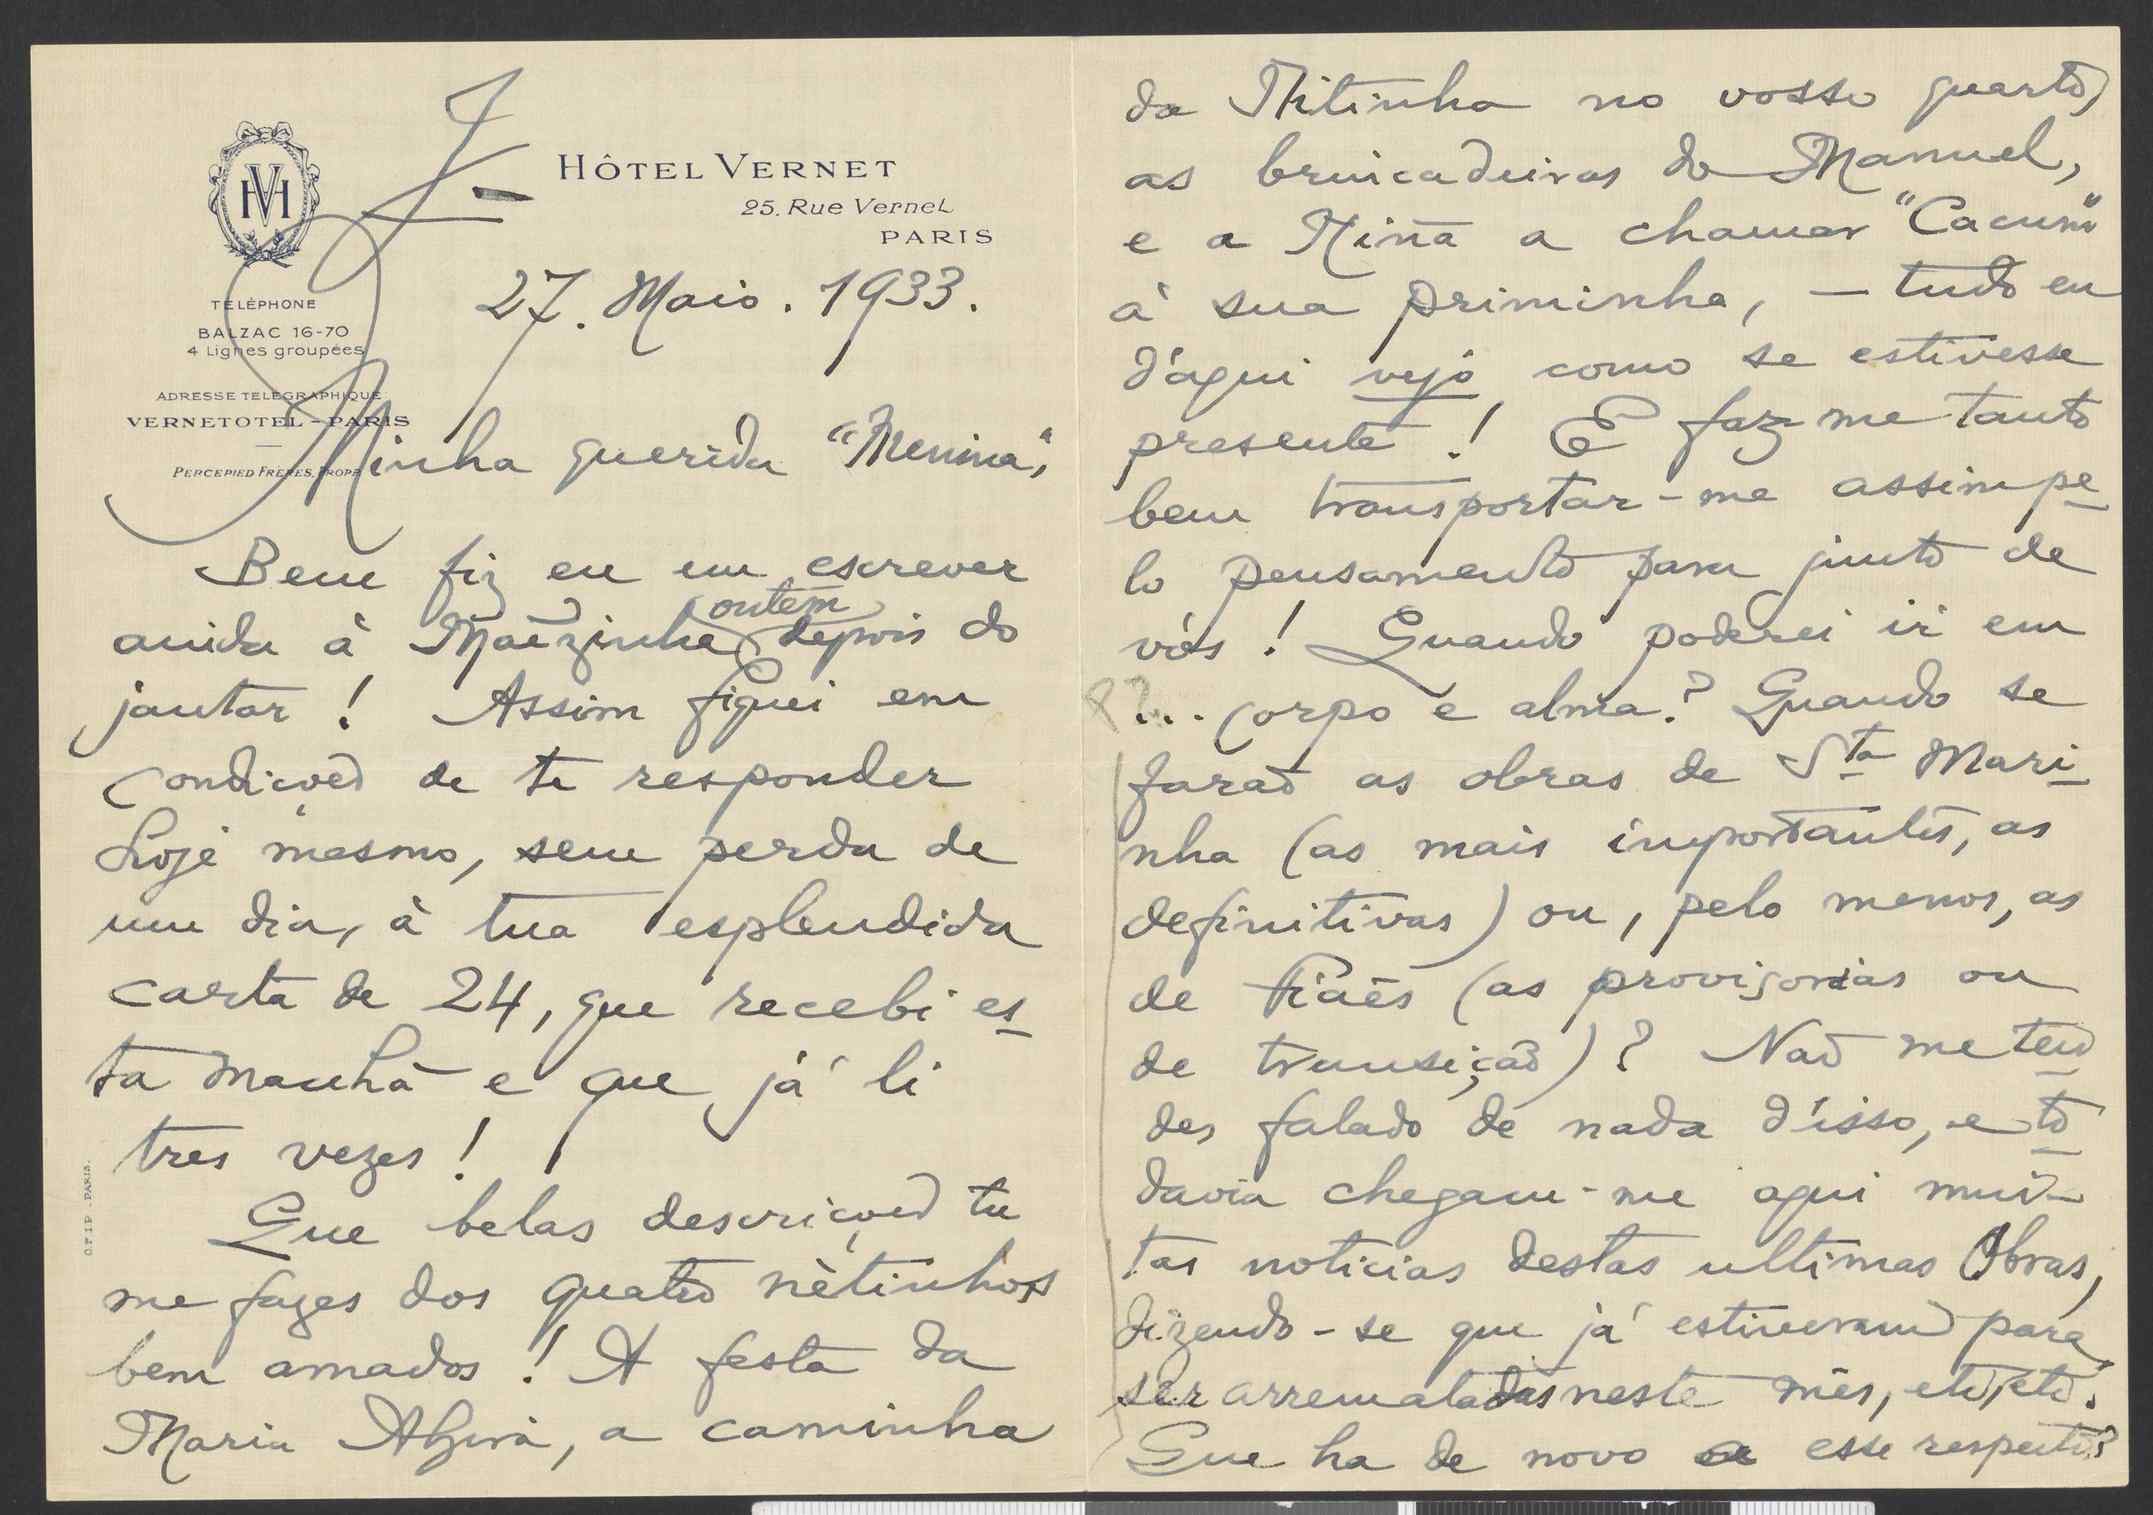 J.
HÔTEL VERNET
25, Rue Vernet
PARIS
TÉLÉPHONE
BALZAC 16-70
4 Lignes groupées
ADRESSE TÉLÉGRAPHIQUE
VERNETOTEL - PARIS
PERCEPIED FRÈRES, PROPR
27. Maio. 1933.
Minha querida "Menina",
Bem fiz eu em escrever
ainda à Mãezinha (ontem) depois do
jantar! Assim fiquei em
condições de te responder
hoje mesmo, sem perda de
um dia, à tua esplendida
carta de 24, que recebi es-
ta manhã e que já li
tres vezes!
Que belas descrições tu
me fazes dos quatro nètinhos
bem amados! A festa da
Maria Alzira, a caminha
O.F.I.P. - PARIS.
da Titinha no vosso quarto,
as brincadeiras do Manuel,
e a Nina a chamar
à sua priminha, - tudo eu
d'aqui vejo como se estivesse
presente! E faz-me tanto
bem transportar-me assim pe-
lo pensamento para junto de
vós! Quando poderei ir em
?... corpo e alma? Quando se
farão as obras de Sta Mari-
nha (as mais importantes, as
definitivas) ou, pelo menos, as
de Fiães (as provisorias ou
de transição)? Não me ten-
des falado de nada d'isso, e to-
davia chegam-me aqui mui-
tas noticias destas ultimas Obras,
dizendo-se que já estiveram para
ser arrematadas neste mês, etc, etc.
Que ha de novo a esse respeito?